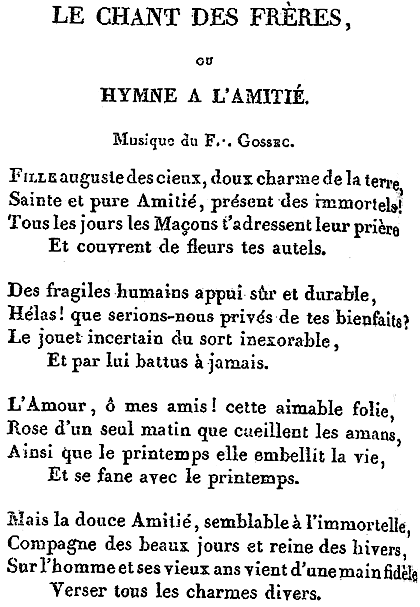 LE CHANT DES FRÈRES,
OU
HYMNE A L'AMITIÉ.
Musique du F.·. Gossec.
Fille auguste des cieux, doux charme de la terre,
Sainte et pure Amitié, présent des immortels!
Tous les jours les Maçons t'adressent leur prière
Et couvrent de fleurs tes autels.
Des fragiles humains appui sûr et durable,
Hélas! que serions-nous privés de tes bienfaits?
Le jouet incertain du sort inexorable,
Et par lui battus à jamais.
L'Amour, ô mes amis! cette aimable folie,
Rose d'un seul matin que cueillent les amans,
Ainsi que le printemps elle embellit la vie,
Et se fane avec le printemps.
Mais la douce Amitié, semblable à l'immortelle,
Compagne des beaux jours et reine des hivers,
Sur l'homme et ses vieux ans vient d'une main fidèle
Verser tous les charmes divers.